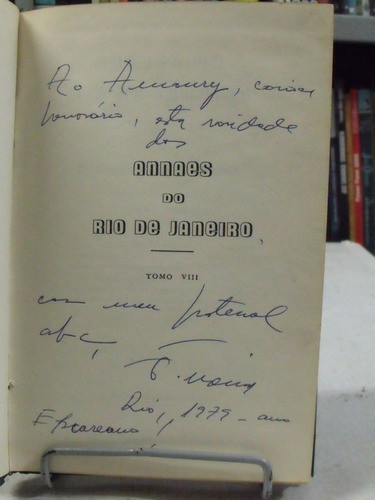 Ao Amaury, carioca
honorário, esta raridade
dos
ANNAES
DO
RIO DE JANEIRO,
TOMO VIII
com meu fraternal
abç,
Rio, 1979 - ano